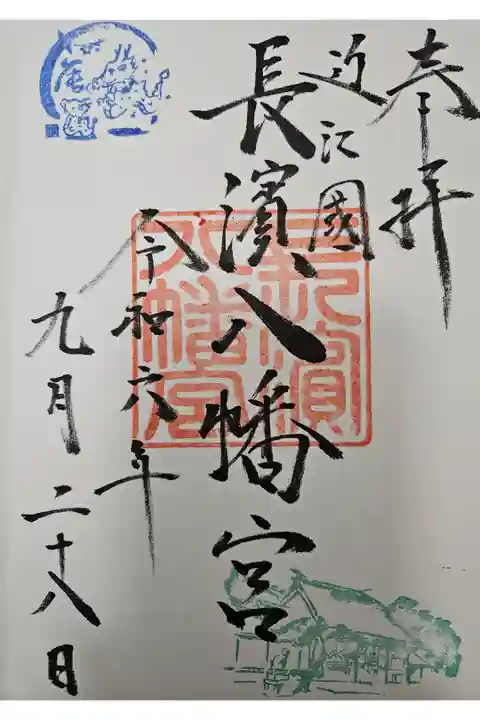 奉拝
近江國
長濱八幡宮
長濱八幡宮
令和六年
九月二十八日